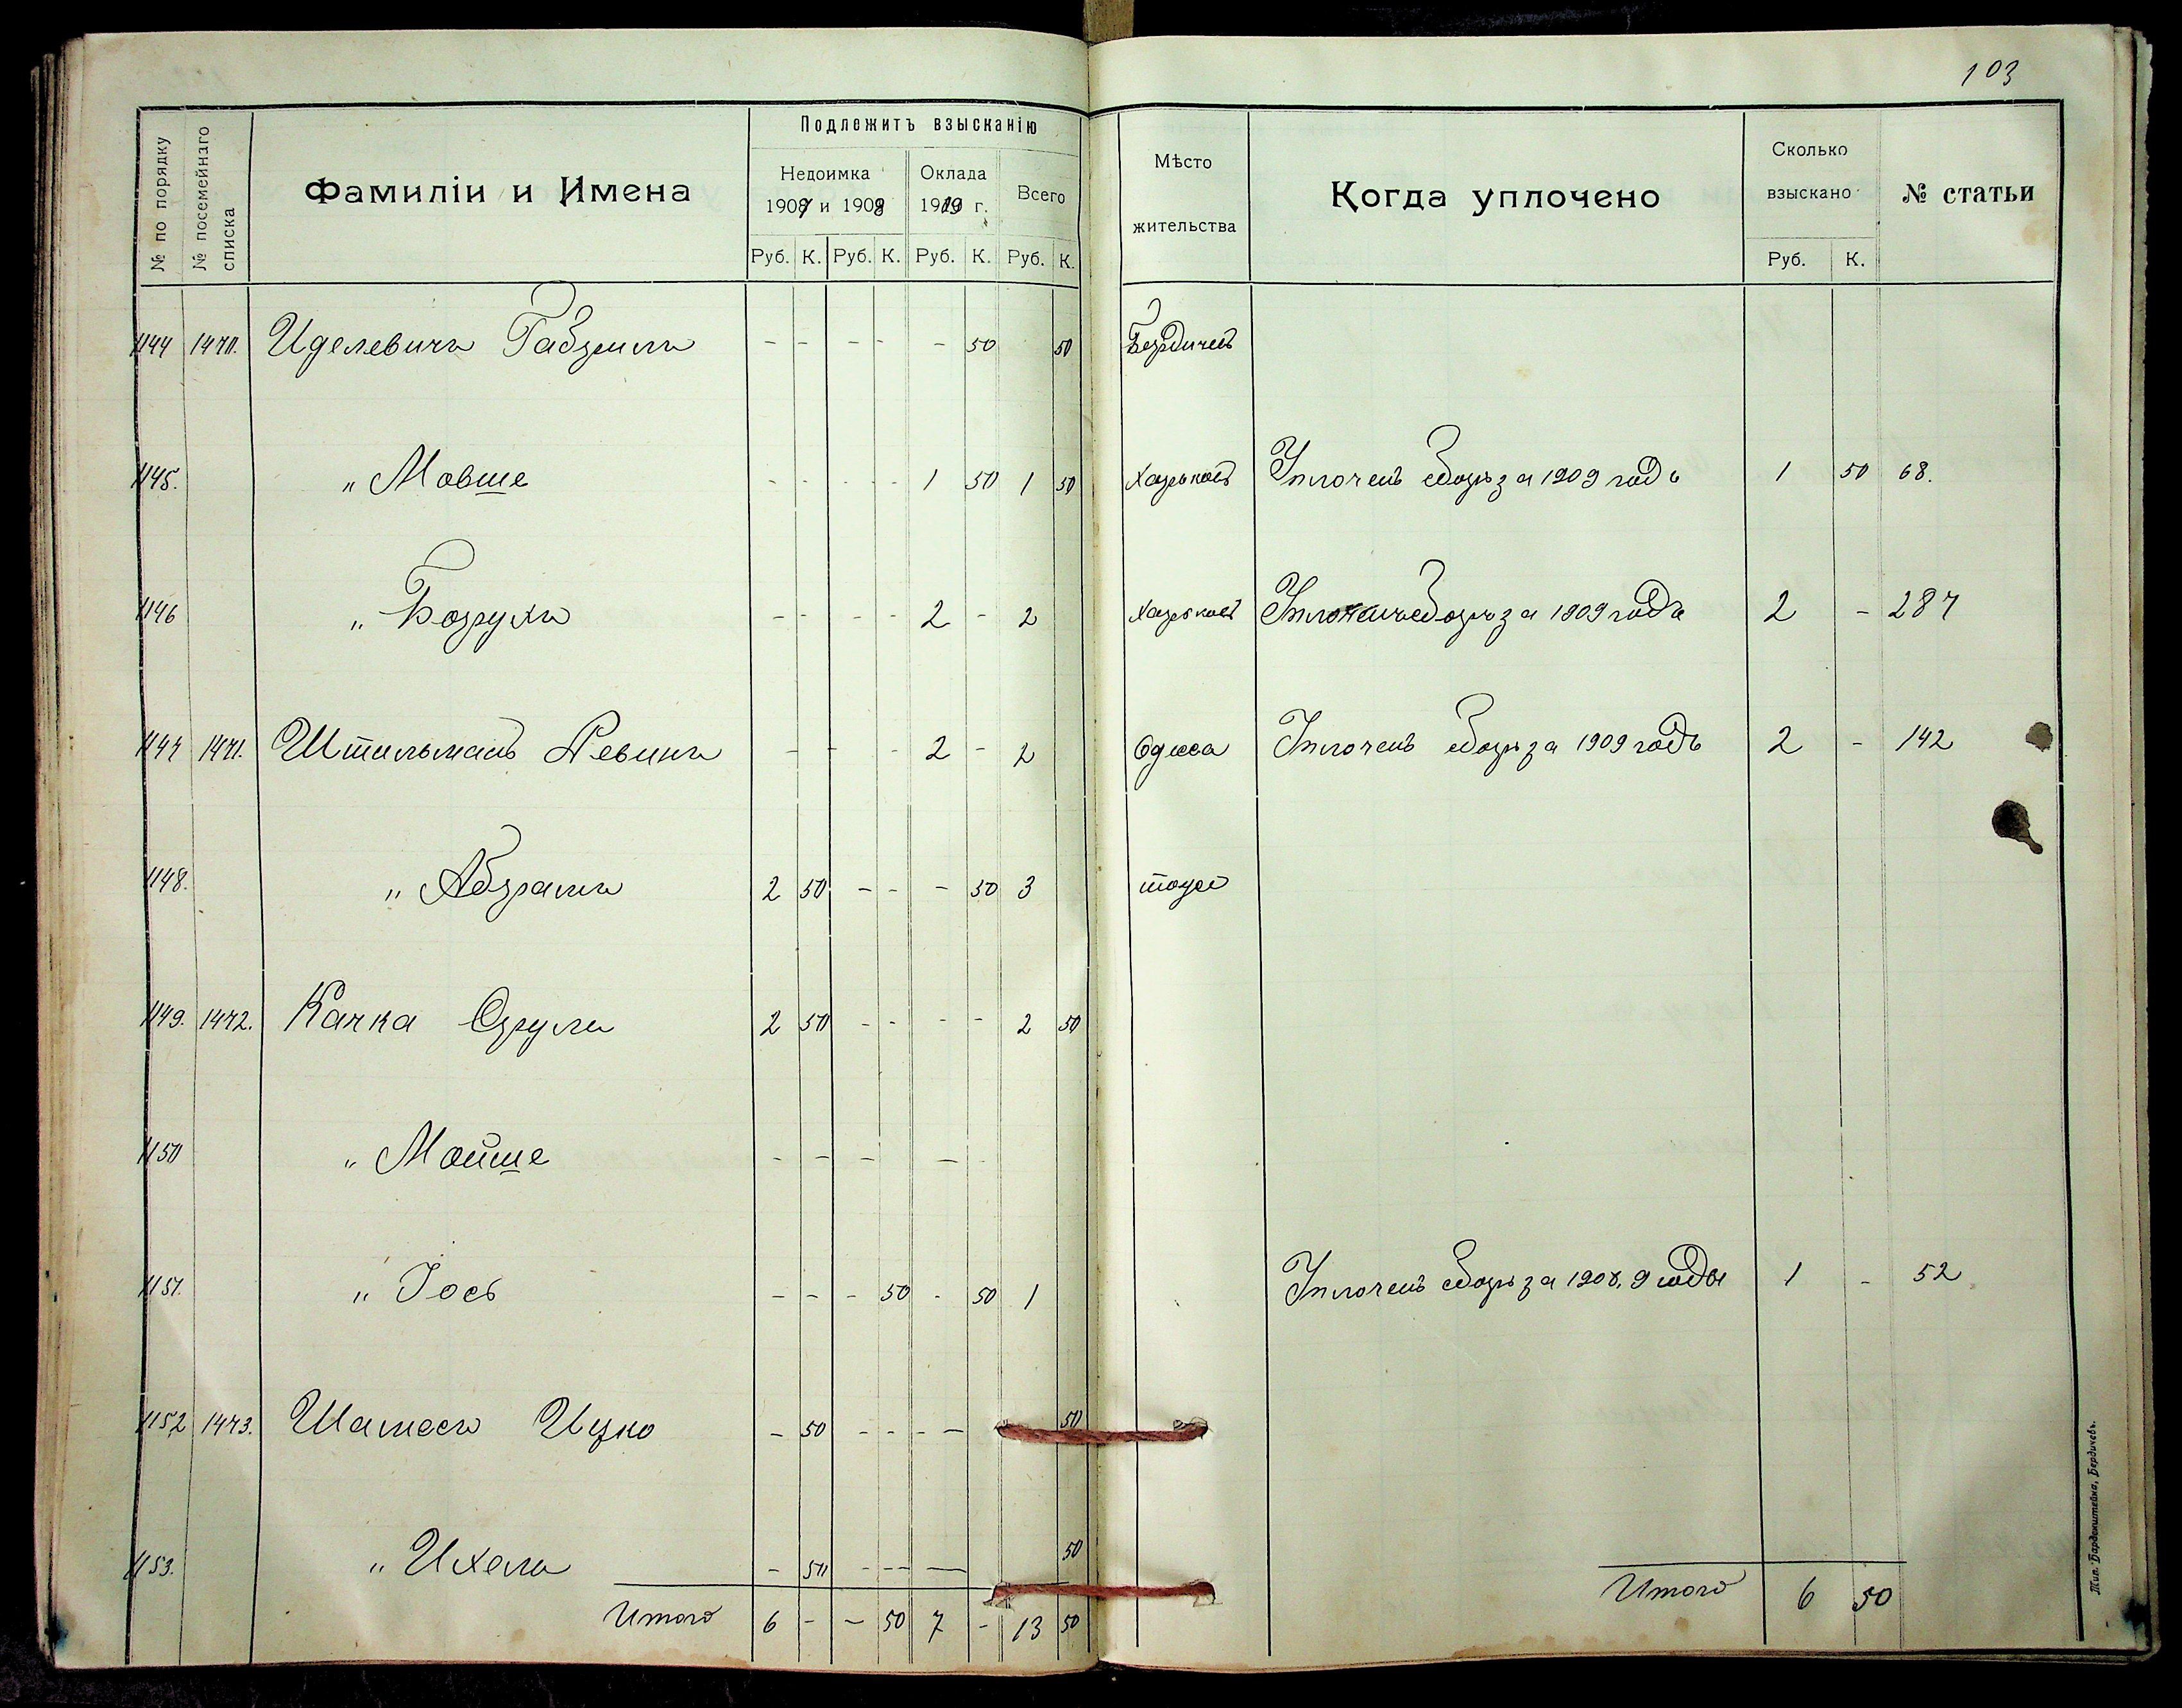 103
№ по порядку
№ посемейнаго списка
Фамиліи и Имена
Подлежитъ взысканію
Недоимка 1907 и 1908
Оклада 1909 г.
Всего
Руб. К. Руб. К. Руб. К. Руб. К.
Мѣсто жительства
Когда уплочено
Сколько взыскано
Руб. К.
№ статьи
1144 1470. Иделевичъ Габриль - - - - - 50 50 Бердичевъ
1145. " Мовше - - - - - 1 50 1 50 Харьковъ Уплоченъ сборъ за 1909 годъ 1 50 68.
1146 " Борухъ - - - - 2 - 2 Харьковъ Уплоченъ сборъ за 1909 годъ 2 - 287
1147 1471. Штильманъ Левикъ - - - 2 - 2 Одесса Уплоченъ сборъ за 1909 годъ 2 - 142
1148. " Абрамъ 2 50 - - - 50 3 тоже
1149. 1472. Качка Сруль 2 50 - - - - 2 50
1150 " Мойше - - - -
1151. " Іось - - - 50 - 50 1 Уплоченъ сборъ за 1908, 9 годы 1 - 52
1152 1473. Шамесъ Ицко - 50 - - - - 50
1153. " Ихель - 50 - - - - 50
Итого 6 - - 50 7 - 13 50 Итого 6 50
Тип. Барденштейна, Бердичевъ.